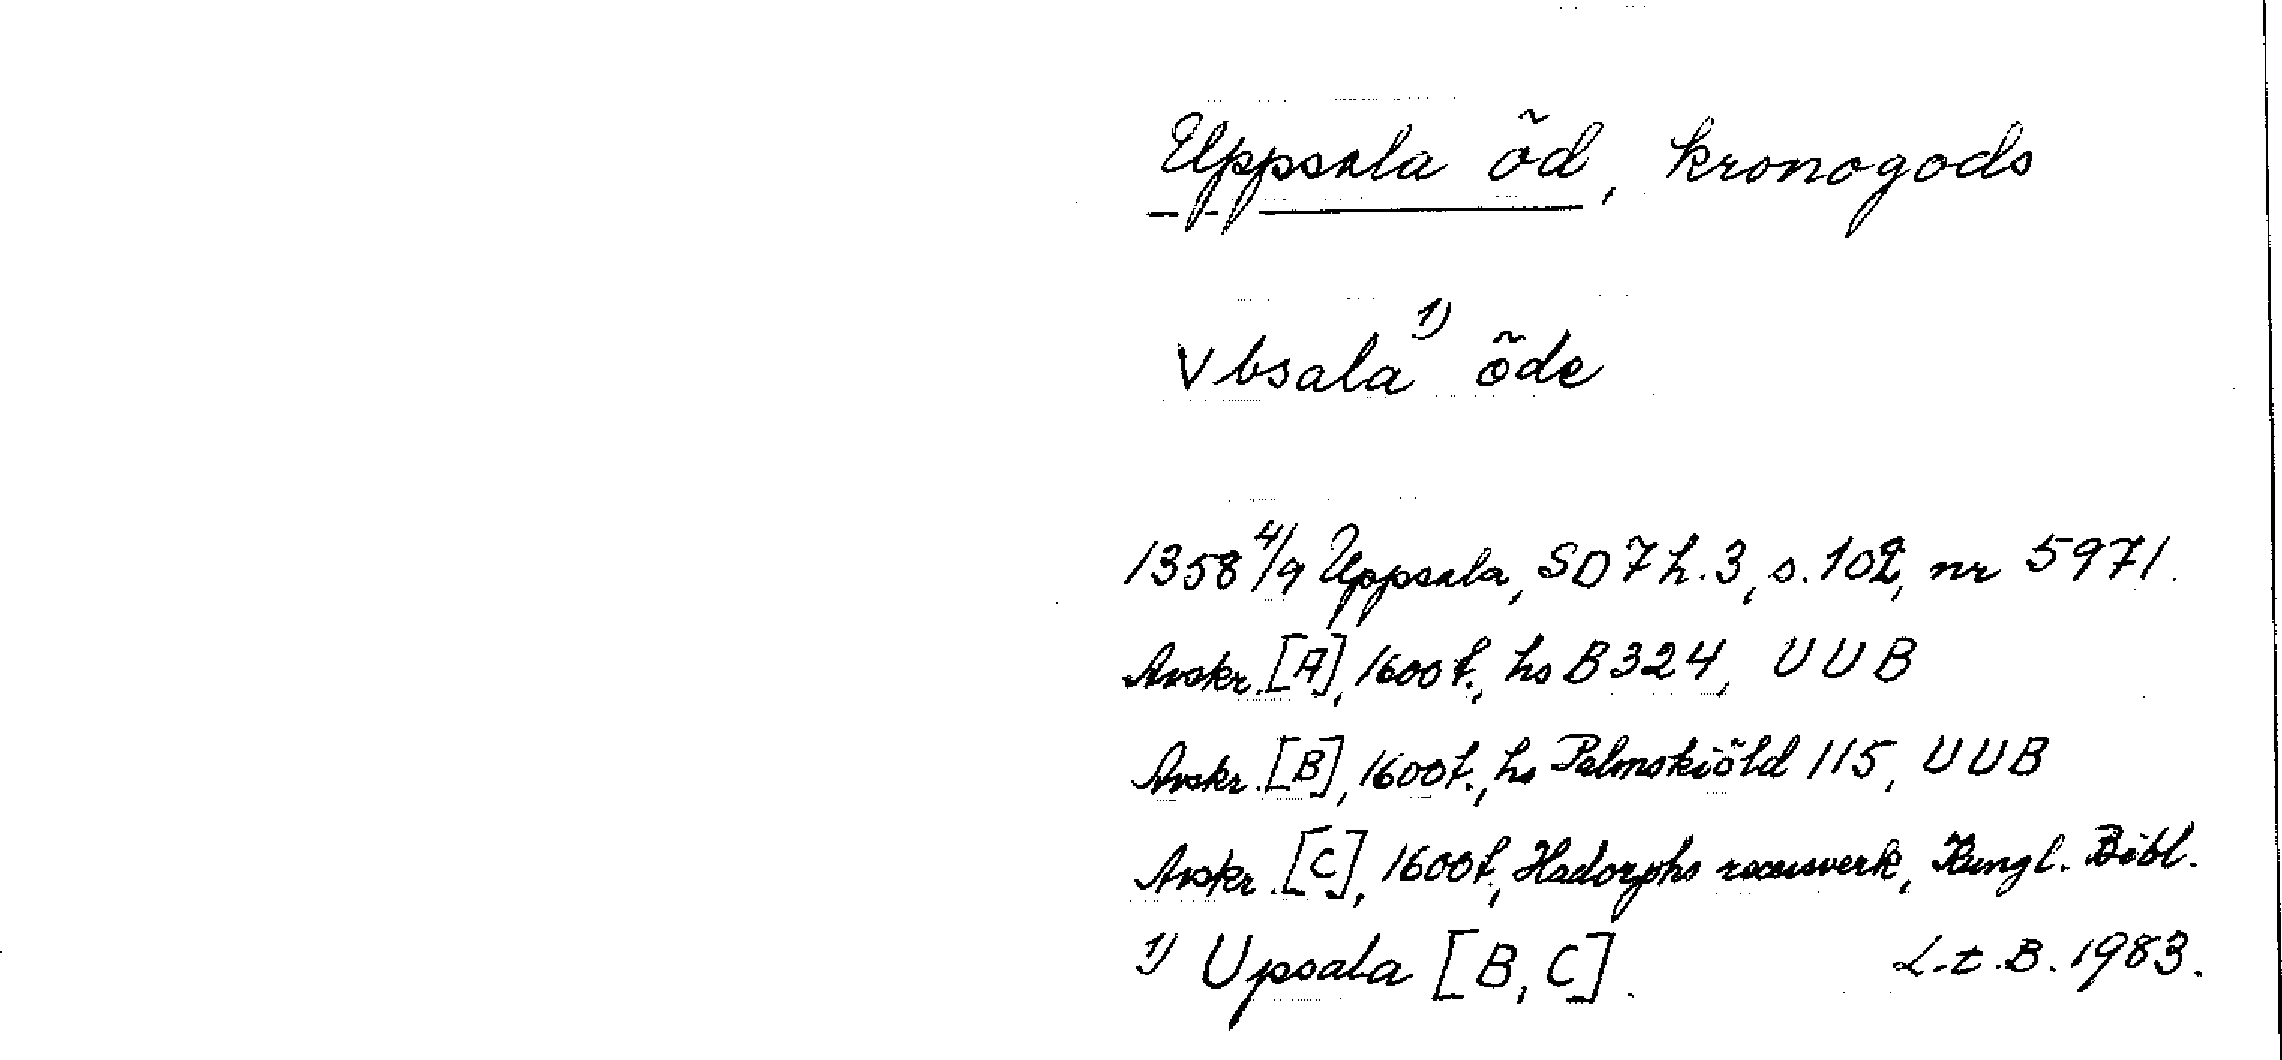 Uppsala öd, kronogods
Vbsala¹⁾ öde
1358 4/9 Uppsala, SD 7 h. 3, s. 102, nr 5971.
Avskr. [A], 1600t., hs B 324, UUB
Avskr. [B], 1600t., hs Palmskiöld 115, UUB
Avskr. [C], 1600t., Hadorphs rxxxxverk, Kungl. Bibl.
¹⁾ Upsala [B, C]. L.t.B. 1983.